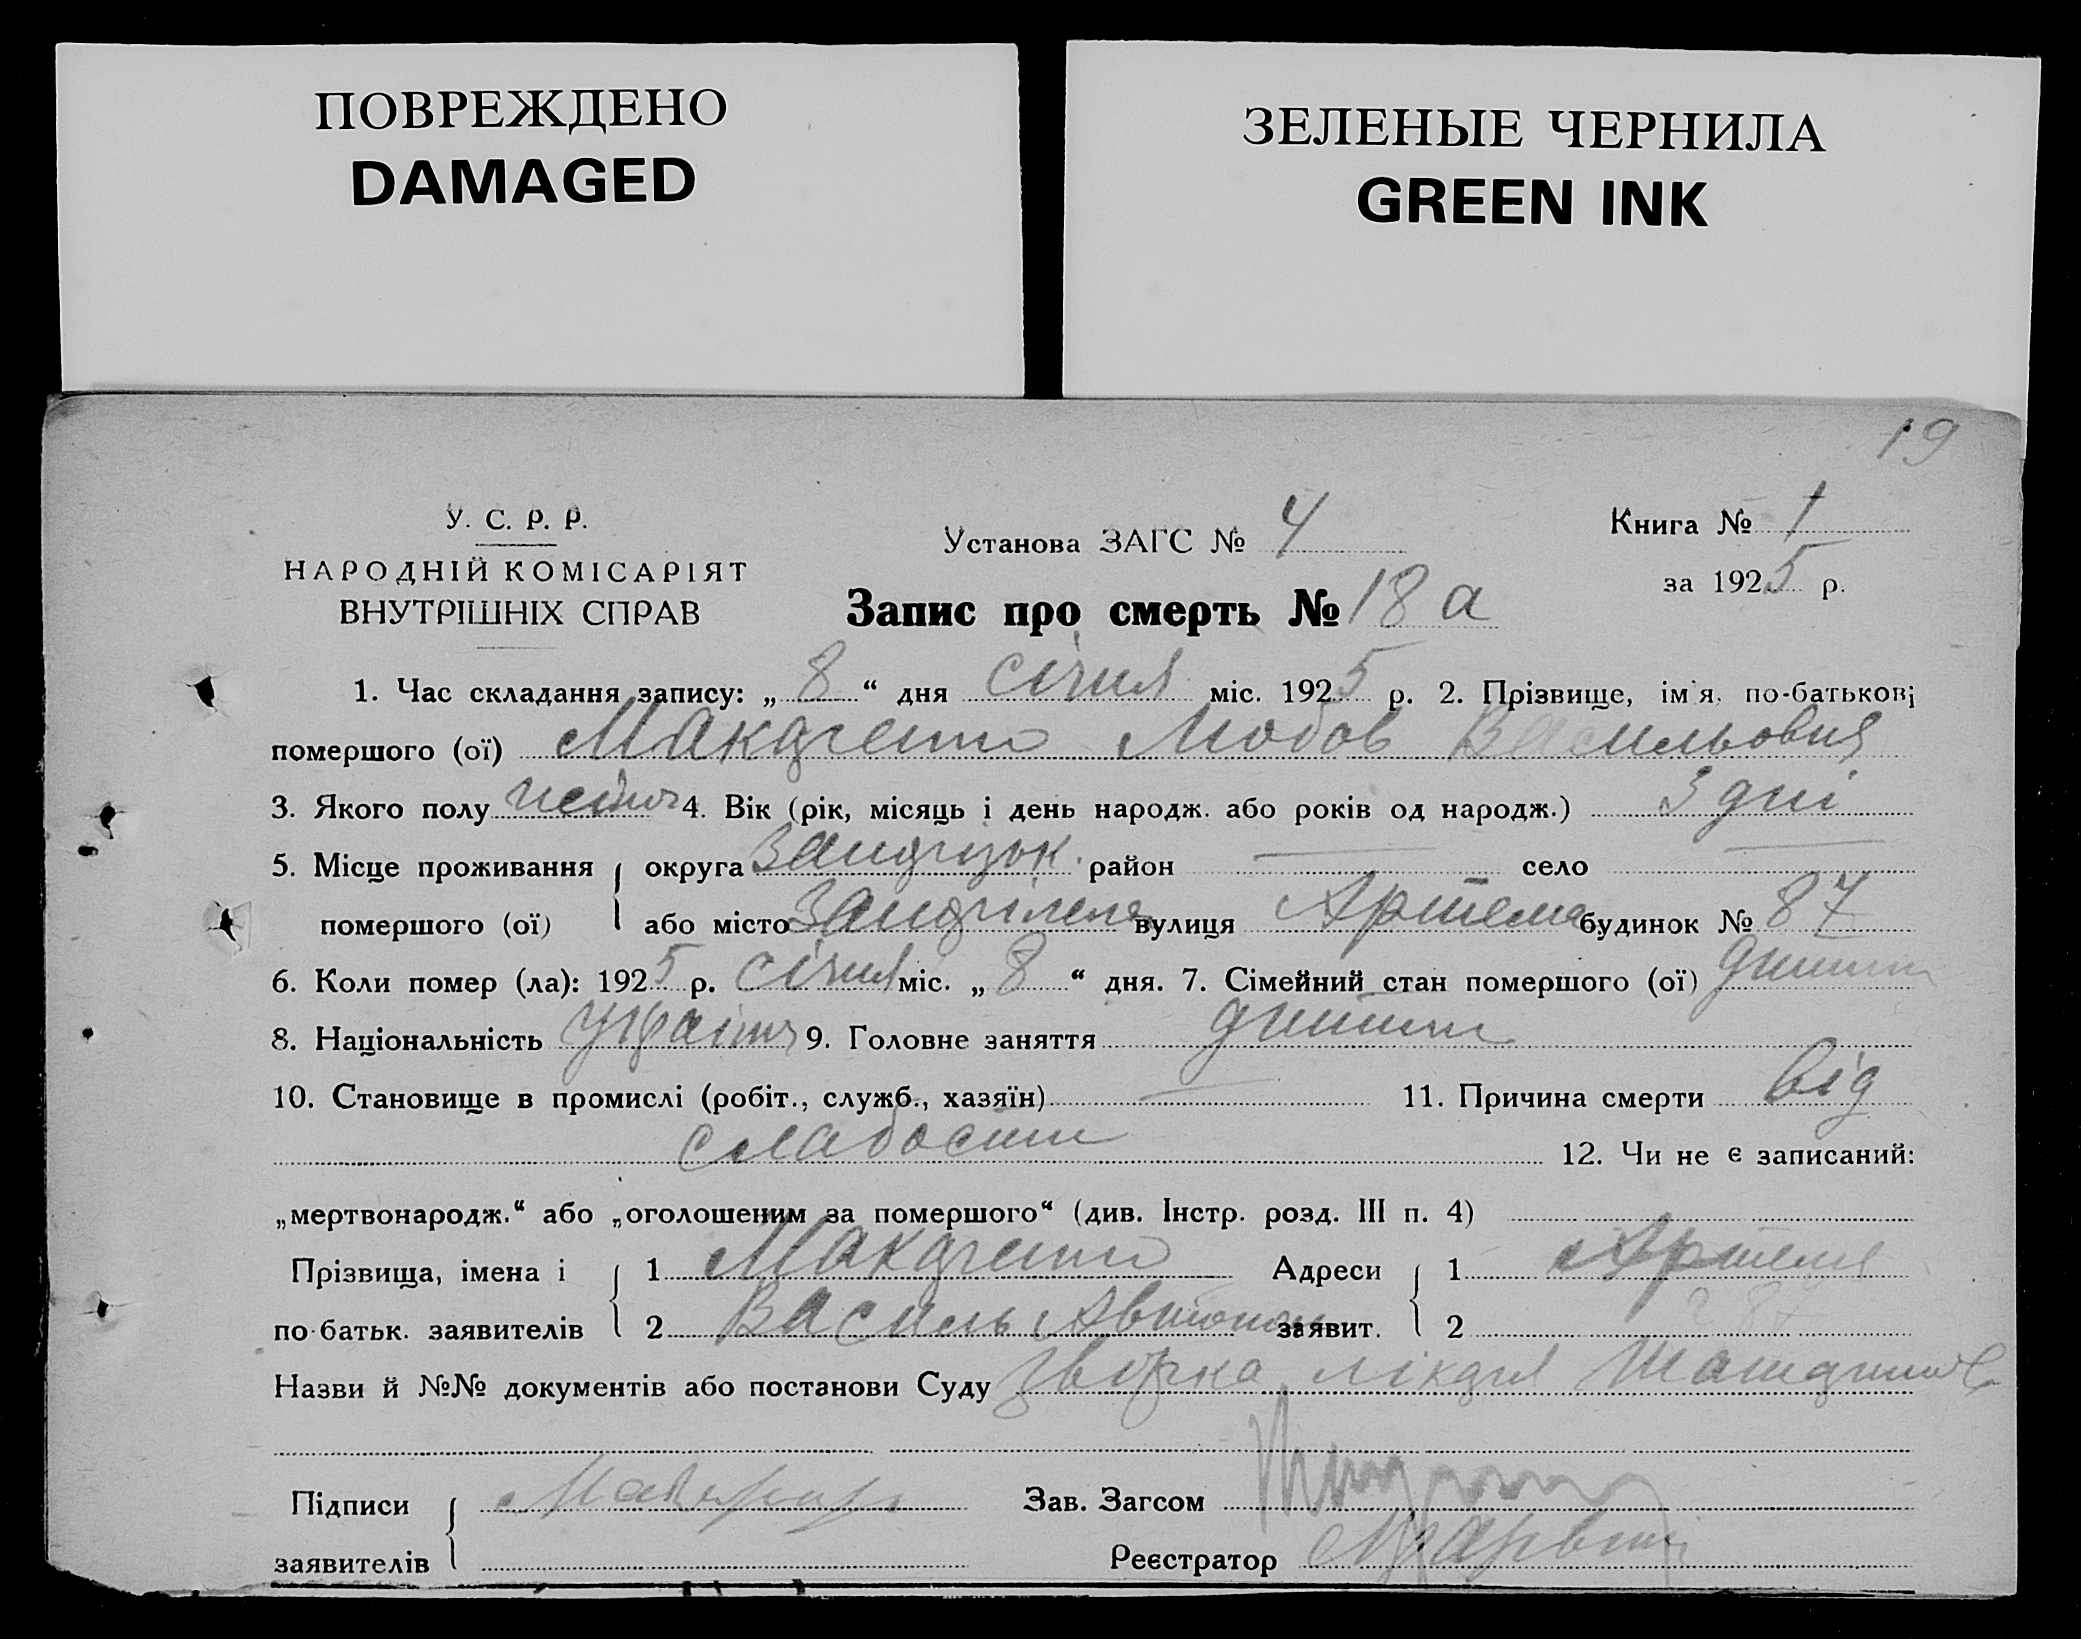 ПОВРЕЖДЕНО
DAMAGED
ЗЕЛЕНЫЕ ЧЕРНИЛА
GREEN INK
19
У. С. Р. Р.
НАРОДНІЙ КОМІСАРІЯТ
ВНУТРІШНІХ СПРАВ
Установа ЗАГС № 4
Книга № 1
за 1925 р.
Запис про смерть № 18 а
1. Час складання запису: „ 8 “ дня січня міс. 1925 р. 2. Прізвище, ім'я, по-батькові
помершого (ої) Любов Васильовня
3. Якого полу 4. Вік (рік, місяць і день народж. або років од народж.) 3 дні
5. Місце проживання округа район село
помершого (ої) або місто вулиця Артема будинок № 87
6. Коли помер (ла): 1925 р. січня міс. „ 8 “ дня. 7. Сімейний стан помершого (ої) дитина
8. Національність 9. Головне заняття дитина
10. Становище в промислі (робіт., служб., хазяїн) 11. Причина смерти від
слабости 12. Чи не є записаний:
„мертвонародж.“ або „оголошеним за помершого“ (див. Інстр. розд. III п. 4)
Прізвища, імена і 1 Адреси 1 Артема
по-батьк. заявителів 2 Василь заявит. 2 87
Назви й №№ документів або постанови Суду лікаря
Підписи Зав. Загсом
заявителів Реєстратор